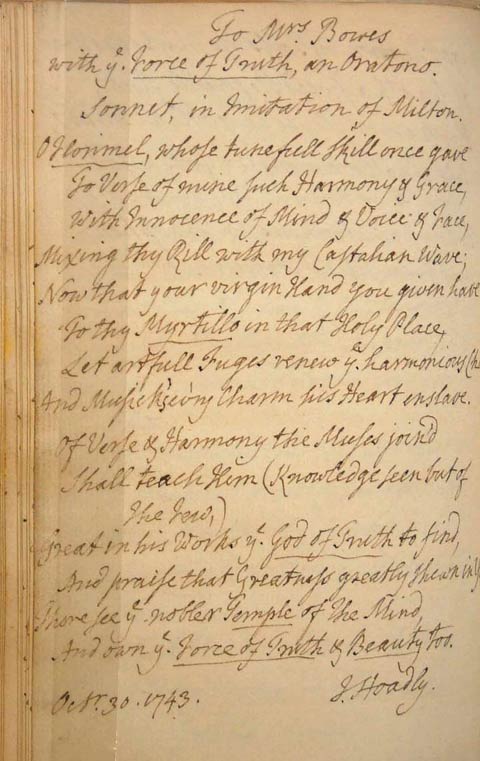 To Mrs. Bowes
with ye. Force of Truth, an Oratorio.
Sonnet, in Imitation of Milton.
O Florimel, whose tunefull Skill once gave
To Verse of mine such Harmony & Grace,
With Innocence of Mind & Voice & Face,
Mixing thy Rill with my Castalian Wave;
Now that your virgin Hand you given have
To thy Myrtillo in that Holy Place,
Let artfull Fuges renew ye. harmonious
And Musick's ev'ry Charm his Heart enslave.
Of Verse & Harmony the Muses join'd
Shall teach Him (Knowledge seen but of
the Few,)
Great in his Works ye. God of Truth to find,
And praise that Greatness greatly shewn in
There see ye. nobler Temple of the Mind
And own ye. Force of Truth & Beauty too.
Octr. 30. 1743. J. Hoadly.